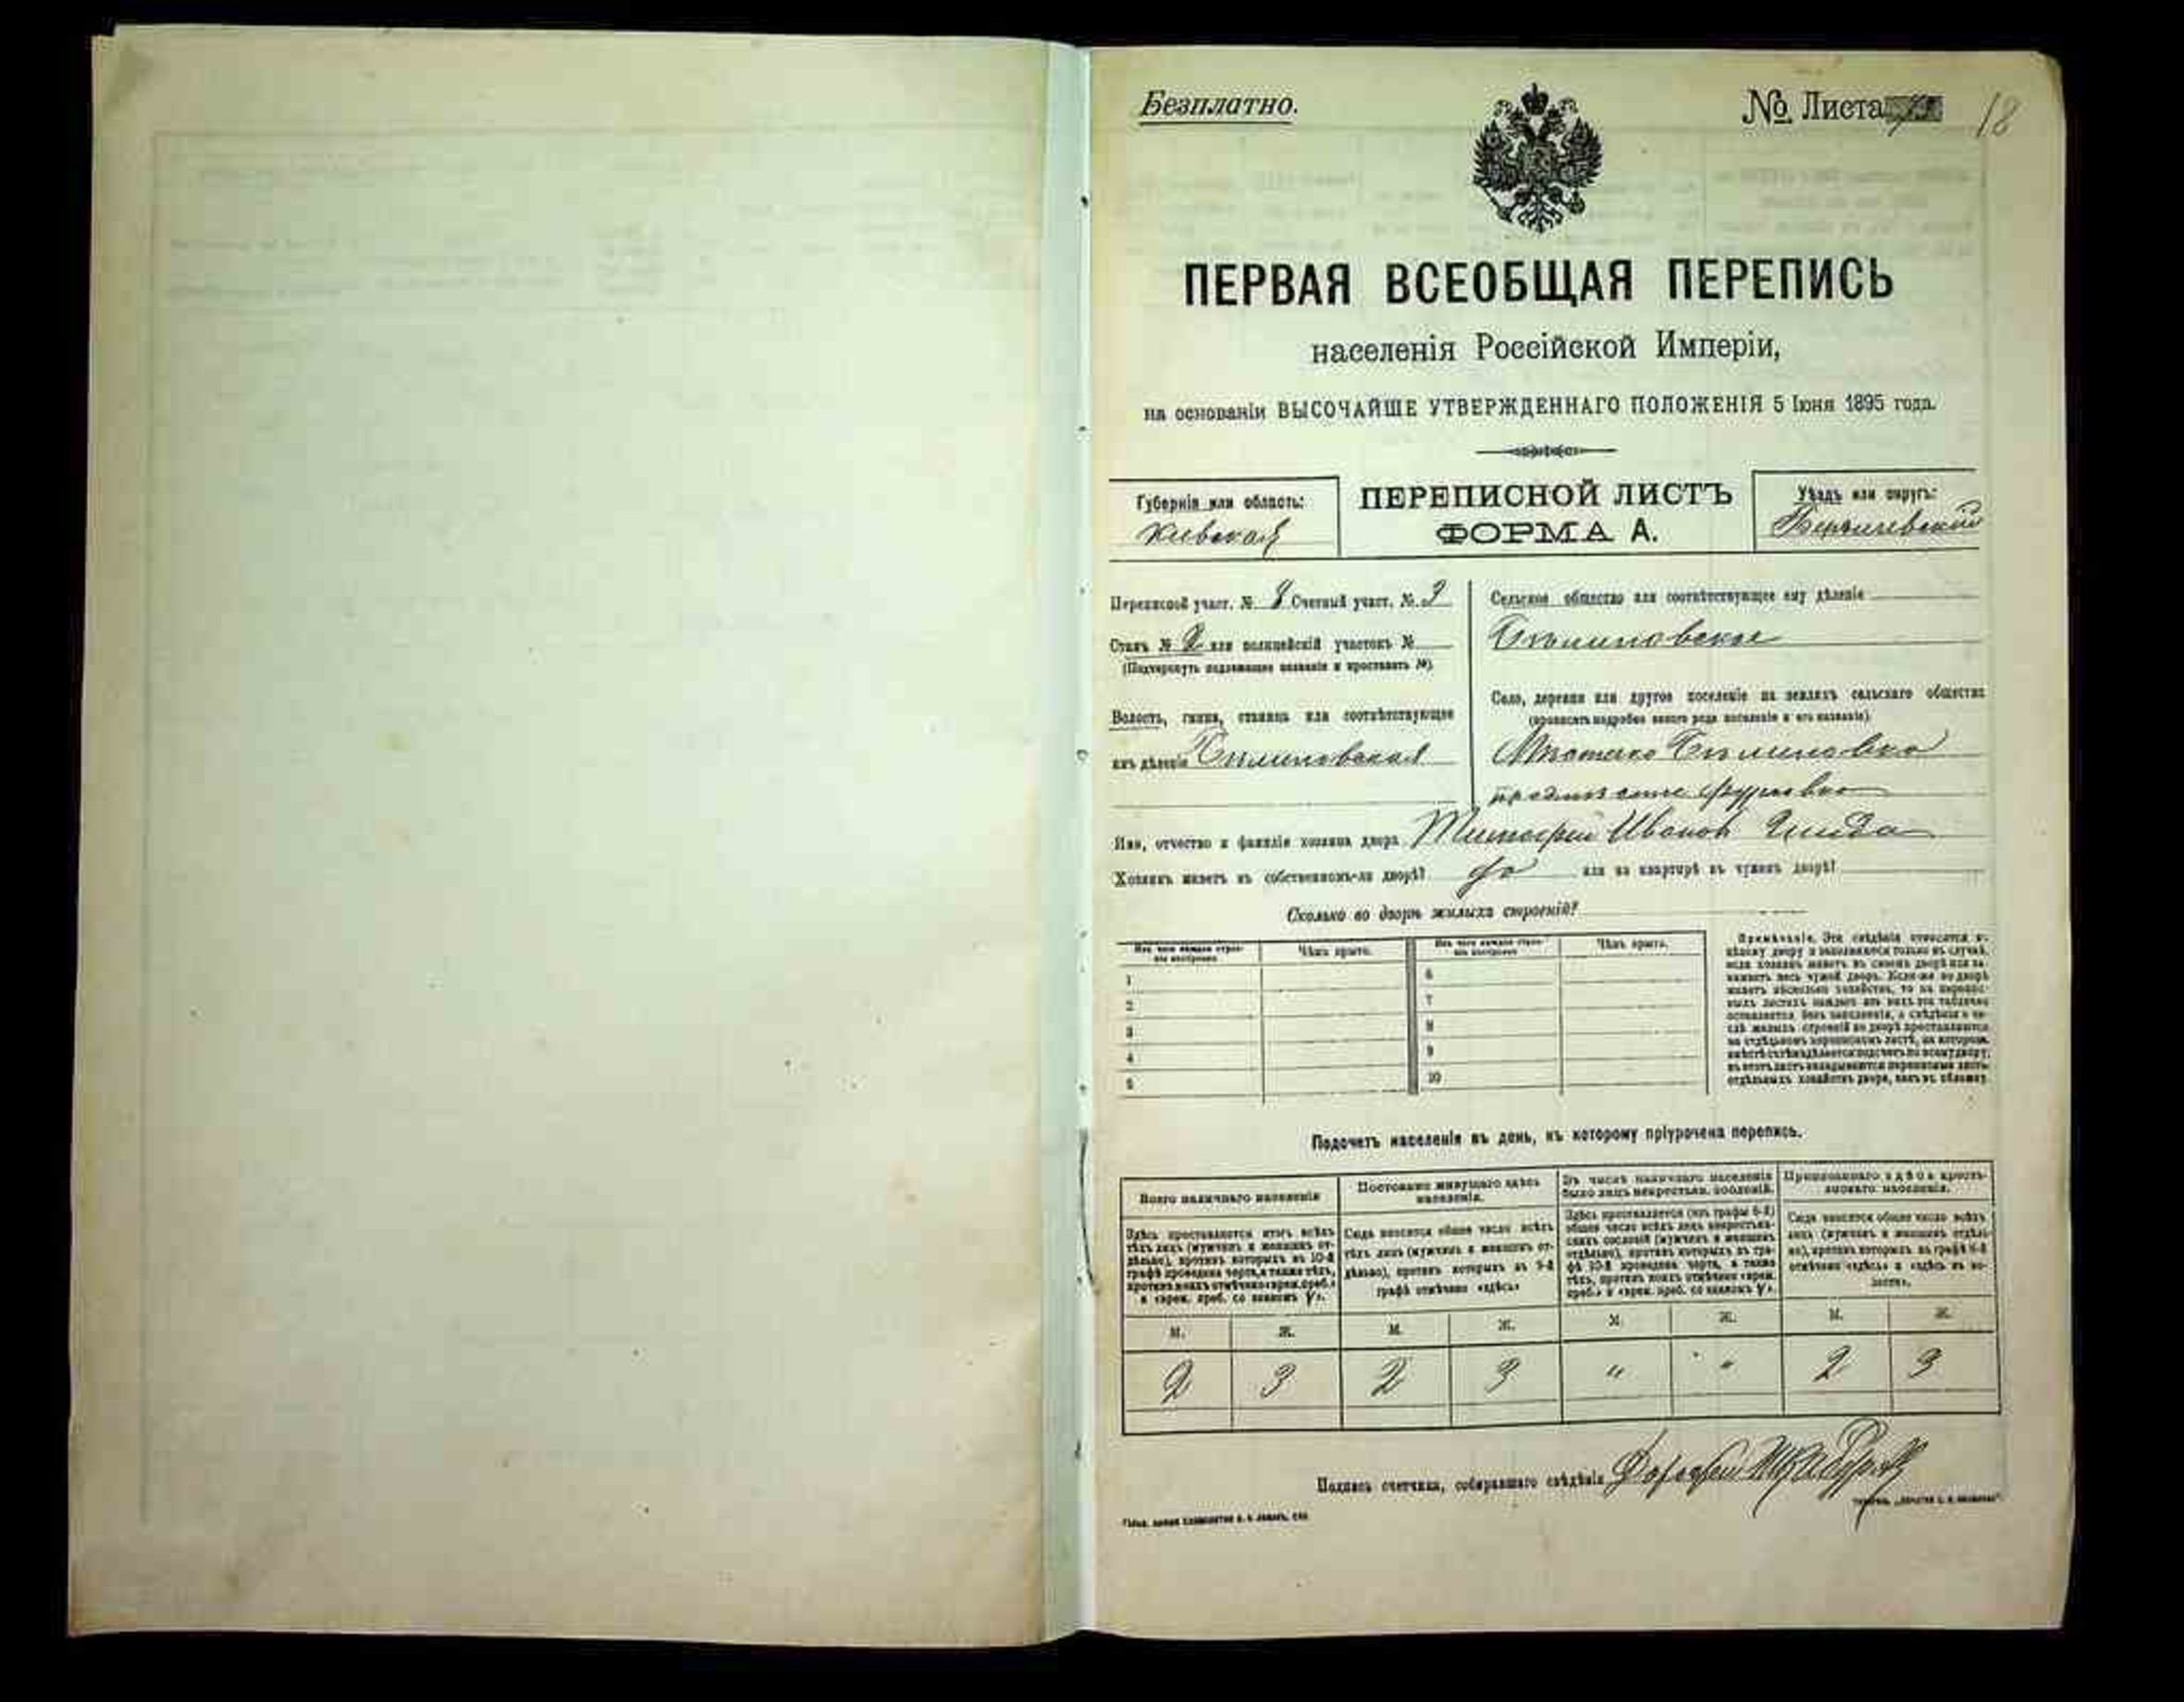 Безплатно.
№ Листа 18
ПЕРВАЯ ВСЕОБЩАЯ ПЕРЕПИСЬ
населенія Россійской Имперіи,
на основаніи ВЫСОЧАЙШЕ УТВЕРЖДЕННАГО ПОЛОЖЕНІЯ 5 Іюня 1895 года.
Губернія или область:
Киевская
ПЕРЕПИСНОЙ ЛИСТЪ
ФОРМА А.
Уѣздъ или округъ:
Бердичевскій
Переписной участ. № 8 Счетный участ. № 9
Станъ № 2 или полицейскій участокъ №
(Подчеркнуть подлежащее названіе и проставить №)
Волость, гмина, станица или соотвѣтствующее
имъ дѣленіе Бѣлиловская
Сельское общество или соотвѣтствующее ему дѣленіе
Бѣлиловское
Село, деревня или другое поселеніе на земляхъ сельскаго общества
(прописать подробно какого рода поселеніе и его названіе)
Мѣстечко Бѣлиловка
предмѣстье
Имя, отчество и фамилія хозяина двора Тимофей Иванов
Хозяинъ живетъ въ собственномъ-ли дворѣ? да или на квартирѣ въ чужомъ дворѣ?
Сколько во дворѣ жилыхъ строеній?
Изъ чего каждое строеніе построено
Чѣмъ крыто.
Изъ чего каждое строеніе построено
Чѣмъ крыто.
1 6
2 7
3 8
4 9
5 10
Примѣчаніе. Эти свѣдѣнія относятся к
цѣлому двору и заполняются только въ случаѣ,
если хозяинъ живетъ въ своемъ дворѣ или за-
нимаетъ весь чужой дворъ. Если же во дворѣ
живетъ нѣсколько хозяйствъ, то на перепис-
ныхъ листахъ каждаго изъ нихъ эта табличка
оставляется безъ заполненія, а свѣдѣнія о чи-
слѣ жилыхъ строеній во дворѣ проставляются
на отдѣльномъ переписномъ листѣ, на которомъ
вмѣстѣ съ тѣмъ дѣлается подсчетъ по всему двору;
въ этотъ листъ вкладываются переписные листы
отдѣльныхъ хозяйствъ двора, какъ въ обложку.
Подсчетъ населенія въ день, къ которому пріурочена перепись.
Всего наличнаго населенія
Постоянно живущаго здѣсь
населенія.
Въ числѣ наличнаго населенія
было лицъ некрестьян. сословій.
Приписаннаго здѣсь кресть-
янскаго населенія.
Здѣсь проставляется итогъ всѣхъ
тѣхъ лицъ (мужчинъ и женщинъ от-
дѣльно), противъ которыхъ въ 10-й
графѣ проведена черта, а также тѣхъ,
противъ коихъ отмѣчено «врем. преб.»
и «врем. преб. со знакомъ V».
Сюда вносится общее число всѣхъ
тѣхъ лицъ (мужчинъ и женщинъ от-
дѣльно), противъ которыхъ въ 9-й
графѣ отмѣчено «здѣсь»
Здѣсь проставляется (изъ графы 6-й)
общее число всѣхъ лицъ некрестьян-
скихъ сословій (мужчинъ и женщинъ
отдѣльно), противъ которыхъ въ гра-
фѣ 10-й проведена черта, а также
тѣхъ, противъ коихъ отмѣчено «врем.
преб.» и «врем. преб. со знакомъ V».
Сюда вносится общее число всѣхъ
лицъ (мужчинъ и женщинъ отдѣль-
но), противъ которыхъ въ графѣ 8-й
отмѣчено «здѣсь» и «здѣсь въ во-
лости».
М. Ж. М. Ж. М. Ж. М. Ж.
2 3 2 3 " " 2 3
Подпись счетчика, собиравшаго свѣдѣнія Дорофей